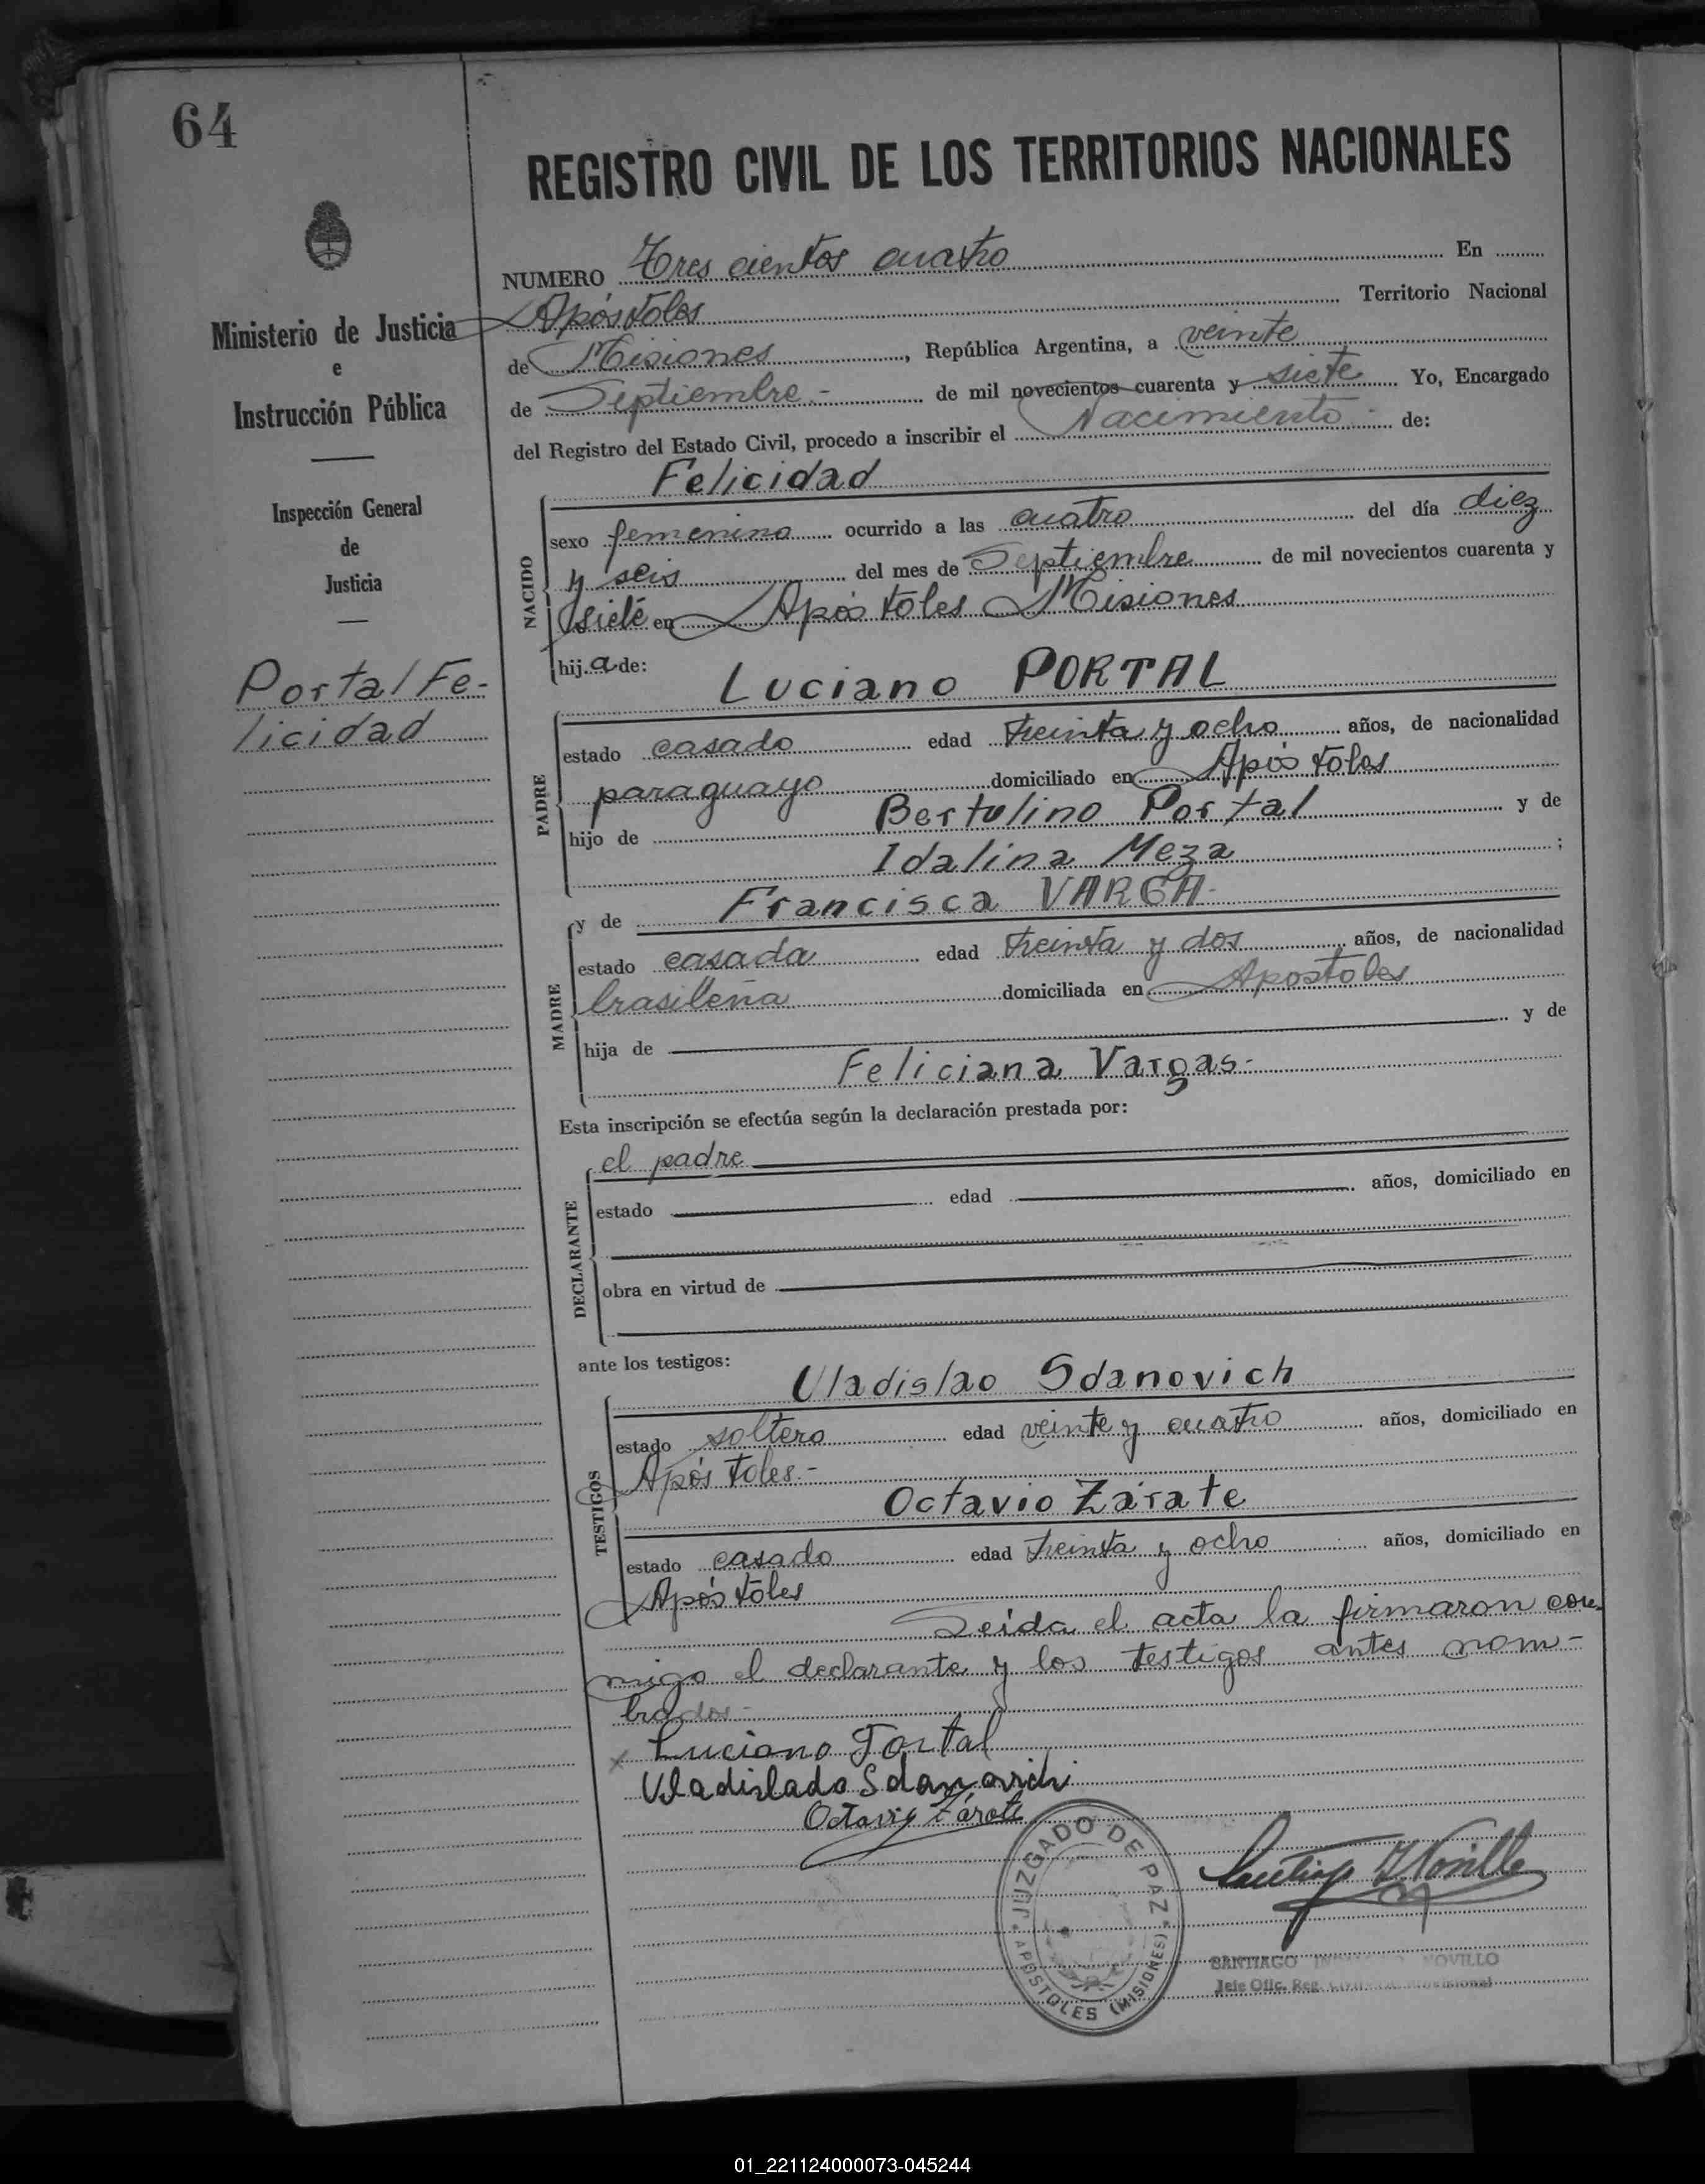 64
REGISTRO CIVIL DE LOS TERRITORIOS NACIONALES
Ministerio de Justicia
e
Instrucción Pública
Inspección General
de
Justicia
Portal Fe-
licidad
NUMERO Tres cientos cuatro En
Apóstoles Territorio Nacional
de Misiones, República Argentina, a veinte
de Septiembre.- de mil novecientos cuarenta y siete Yo, Encargado
del Registro del Estado Civil, procedo a inscribir el Nacimiento de:
Felicidad
NACIDO
sexo femenino ocurrido a las cuatro del día diez
y seis del mes de Septiembre de mil novecientos cuarenta y
siete en Apóstoles Misiones
hij.a de: Luciano PORTAL
PADRE
estado casado edad treinta y ocho años, de nacionalidad
paraguayo domiciliado en Apóstoles
hijo de Bertulino Portal y de
Idalina Meza ;
y de Francisca VARGA-
MADRE
estado casada edad treinta y dos años, de nacionalidad
brasileña domiciliada en Apostoles
hija de y de
Feliciana Vargas-
Esta inscripción se efectúa según la declaración prestada por:
el padre
DECLARANTE
estado edad años, domiciliado en
obra en virtud de
ante los testigos: Uladislao Sdanovich
TESTIGOS
estado soltero edad veinte y cuatro años, domiciliado en
Apóstoles.-
Octavio Zárate
estado casado edad treinta y ocho años, domiciliado en
Apóstoles
Leida el acta la firmaron con-
migo el declarante y los testigos antes nom-
brados-
x Luciano Portal
Vladislado Sdanovich
Octavio Zárate
JUZGADO DE PAZ
APOSTOLES (MISIONES)
SANTIAGO NOVILLO
Jefe Ofic. Reg.
01_221124000073-045244